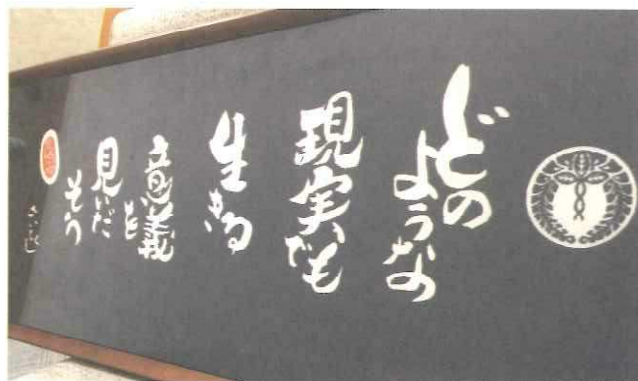 どの
ような
現実でも
生きる
意義
を
見いだ
そう